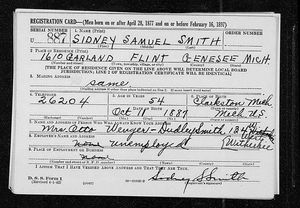 REGISTRATION CARD—(Men born on or after April 28, 1877 and on or before February 16, 1897)
SERIAL NUMBER 1. NAME (Print) ORDER NUMBER
U SIDNEY SAMUEL SMITH
(First) (Middle) (Last)
2. PLACE OF RESIDENCE (Print)
1610 GARLAND FLINT GENESEE MICH.
(Number and street) (Town, township, village, or city) (County) (State)
[THE PLACE OF RESIDENCE GIVEN ON THE LINE ABOVE WILL DETERMINE LOCAL BOARD
JURISDICTION; LINE 2 OF REGISTRATION CERTIFICATE WILL BE IDENTICAL]
3. MAILING ADDRESS
same
4. TELEPHONE 5. AGE IN YEARS 6. PLACE OF BIRTH
26204 54 Clarkston Mich
DATE OF BIRTH
Oct 11 1887 Mich U.S.
7. NAME AND ADDRESS OF PERSON WHO WILL ALWAYS KNOW YOUR ADDRESS
Mrs. Otto Wenger - Dudley Smith
8. EMPLOYER'S NAME AND ADDRESS
none unemployed
9. PLACE OF EMPLOYMENT OR BUSINESS
none
I AFFIRM THAT I HAVE VERIFIED ABOVE ANSWERS AND THAT THEY ARE TRUE.
D. S. S. Form 1
Sidney S Smith